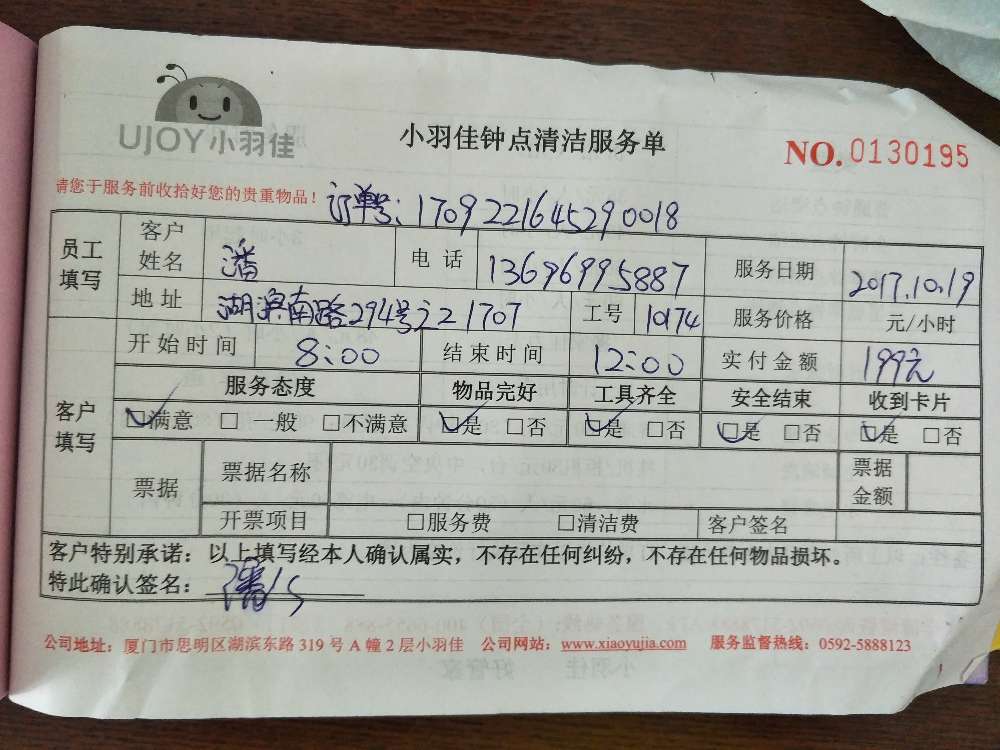 UJOY小羽佳
小羽佳钟点清洁服务单
NO.0130195
请您于服务前收拾好您的贵重物品！
订单号：170922164529 0018
员工填写 客户姓名 潘 电话 13696995887 服务日期 2017.10.19
地址 湖滨南路294号之21707 工号 10174 服务价格 元/小时
开始时间 8:00 结束时间 12:00 实付金额 199元
客户填写 服务态度 物品完好 工具齐全 安全结束 收到卡片
☑满意 □一般 □不满意 ☑是 □否 ☑是 □否 ☑是 □否 ☑是 □否
票据 票据名称 票据金额
开票项目 □服务费 □清洁费 客户签名
客户特别承诺：以上填写经本人确认属实，不存在任何纠纷，不存在任何物品损坏。
特此确认签名：潘
公司地址：厦门市思明区湖滨东路 319 号 A 幢 2 层小羽佳 公司网站：www.xiaoyujia.com 服务监督热线：0592-5888123